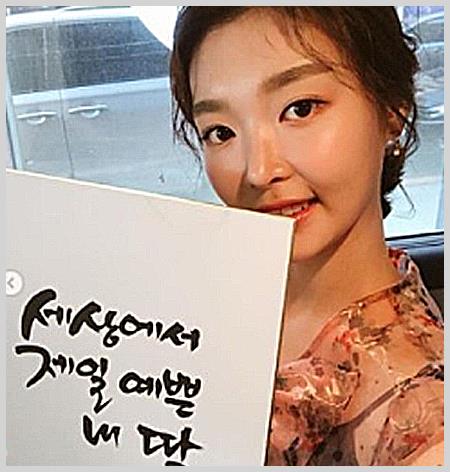 세상에서
제일 예쁜
내 딸